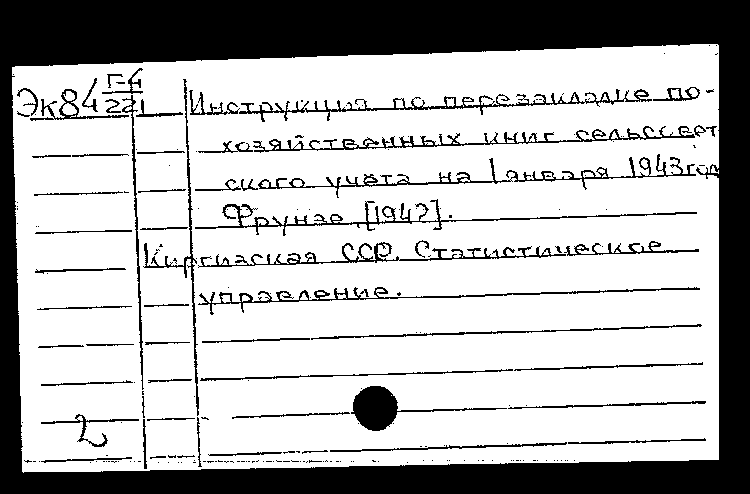 Эк84 Г-4/221
Инструкция по перезакладке по-
хозяйственных книг сельссвет
ского учёта на 1 января 1943 год
Фрунзе, [194?].
Киргизская ССР. Статистическое
управление.
2